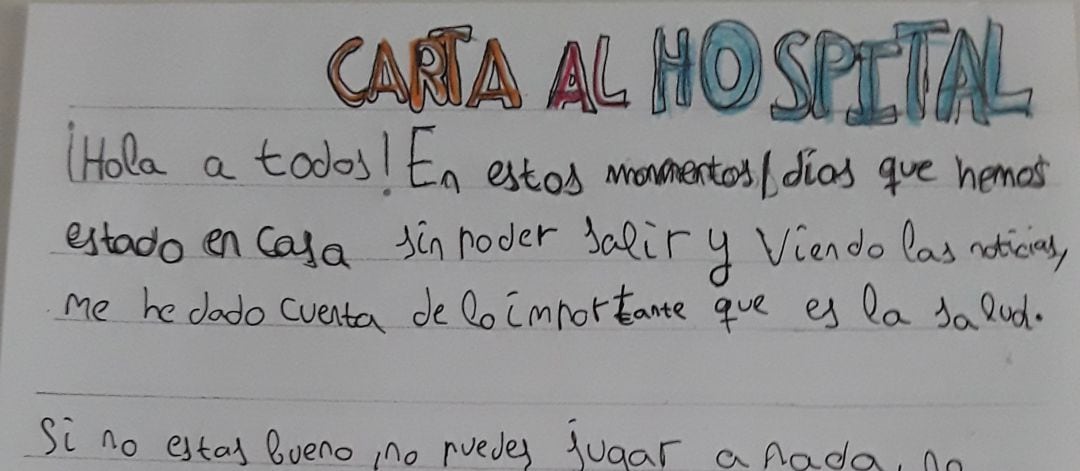 CARTA AL HOSPITAL
¡Hola a todos! En estos momentos/días que hemos
estado en casa sin poder salir y viendo las noticias,
me he dado cuenta de lo importante que es la salud.
Si no estas bueno, no puedes jugar a nada, no